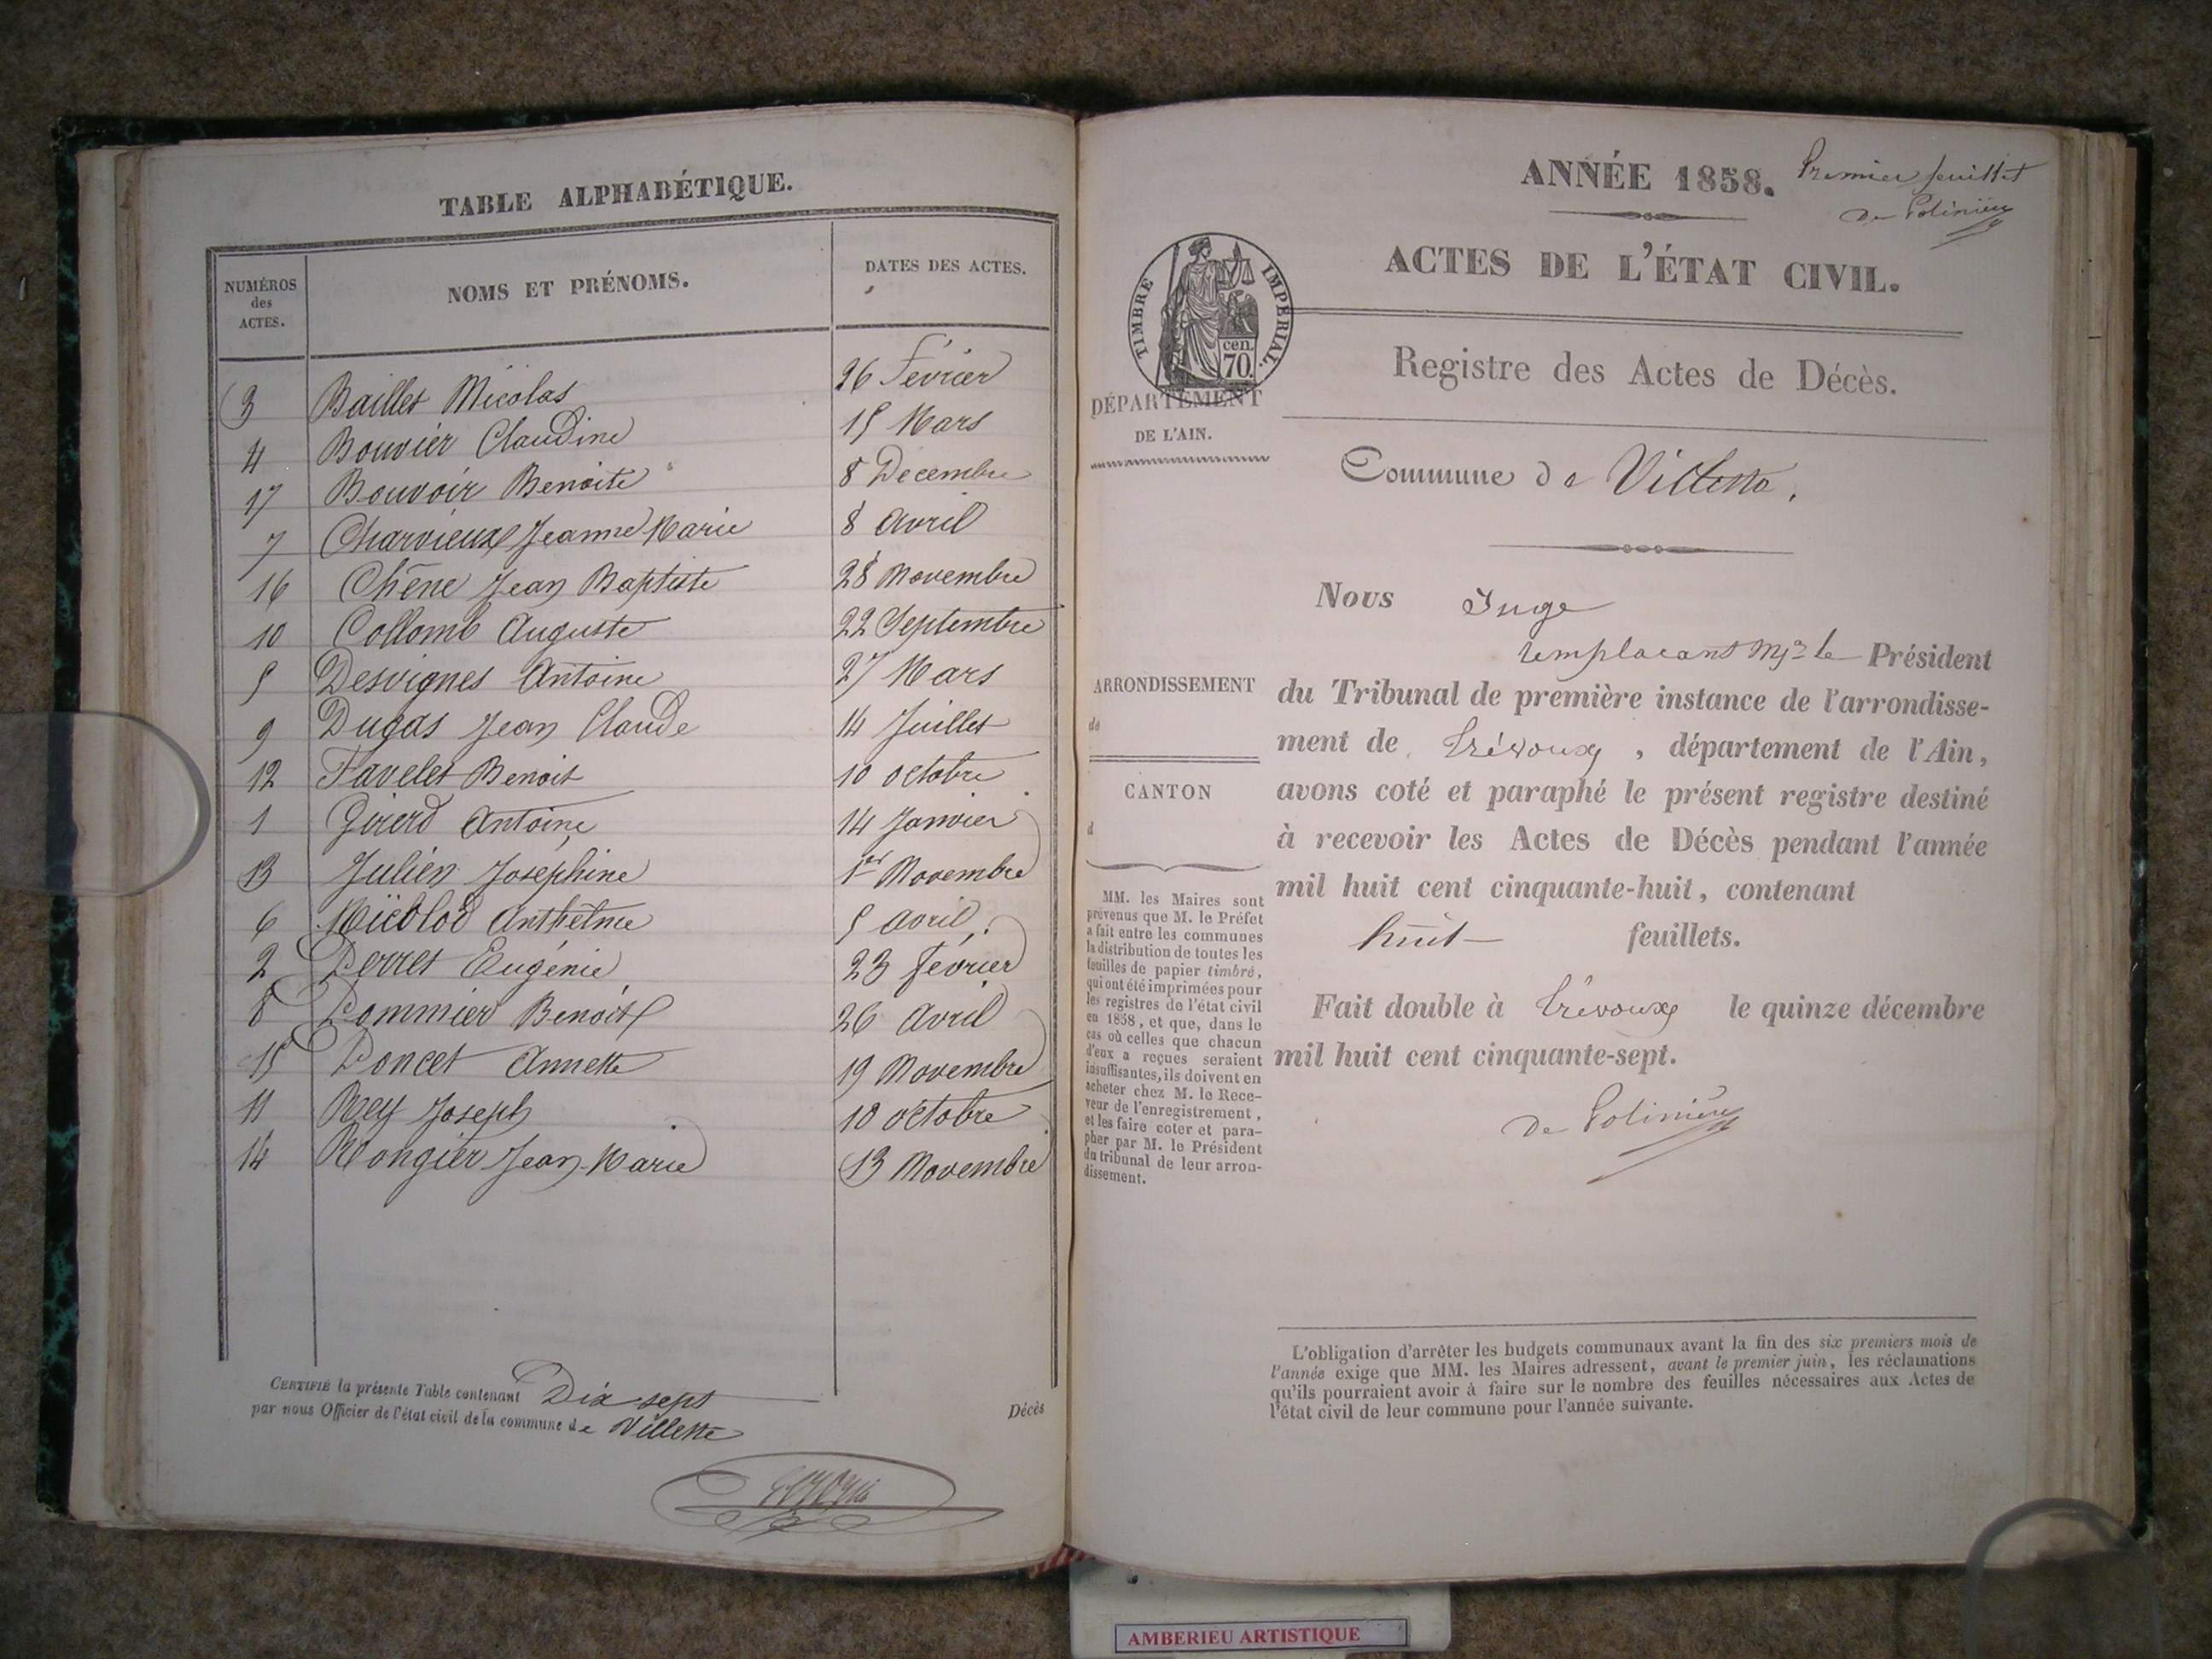 TABLE ALPHABÉTIQUE.
NUMÉROS
des
ACTES.
NOMS ET PRÉNOMS.
DATES DES ACTES.
3 Baillet Nicolas 26 Février
4 Bouvier Claudine 15 Mars
17 Bouvoir Benoite 8 Decembre
7 Charvieux Jeanne Marie 8 avril
16 Chêne Jean Baptiste 28 Novembre
10 Collomb Auguste 22 Septembre
5 Desvignes Antoine 27 Mars
9 Dugas Jean Claude 14 Juillet
12 Favelet Benoit 10 octobre
1 Girerd Antoine 14 Janvier
13 Julien Josephine 1er Novembre
6 Nicolod Anthelme 5 avril
2 Perret Eugénie 23 février
8 Pommier Benoit 26 avril
15 Poncet Annette 19 Novembre
11 Rey Joseph 10 octobre
14 Rongier Jean-Marie 13 Novembre
CERTIFIÉ la présente Table contenant Dix sept
par nous Officier de l'état civil de la commune de Villette
Décès
ANNÉE 1858.
Premier feuillet
de Polinière
ACTES DE L'ÉTAT CIVIL.
TIMBRE IMPÉRIAL.
cen.
70.
Registre des Actes de Décès.
DÉPARTEMENT
DE L'AIN.
Commune de Villette.
Nous Juge
remplacant Mr le Président
du Tribunal de première instance de l'arrondisse-
ment de Trévoux, département de l'Ain,
avons coté et paraphé le présent registre destiné
à recevoir les Actes de Décès pendant l'année
mil huit cent cinquante-huit, contenant
huit feuillets.
Fait double à Trévoux le quinze décembre
mil huit cent cinquante-sept.
de Polinière
ARRONDISSEMENT
de
CANTON
d
MM. les Maires sont
prévenus que M. le Préfet
a fait entre les communes
la distribution de toutes les
feuilles de papier timbré,
qui ont été imprimées pour
les registres de l'état civil
en 1858, et que, dans le
cas où celles que chacun
d'eux a reçues seraient
insuffisantes, ils doivent en
acheter chez M. le Rece-
veur de l'enregistrement,
et les faire coter et para-
pher par M. le Président
du tribunal de leur arron-
dissement.
L'obligation d'arrêter les budgets communaux avant la fin des six premiers mois de
l'année exige que MM. les Maires adressent, avant le premier juin, les réclamations
qu'ils pourraient avoir à faire sur le nombre des feuilles nécessaires aux Actes de
l'état civil de leur commune pour l'année suivante.
AMBERIEU ARTISTIQUE